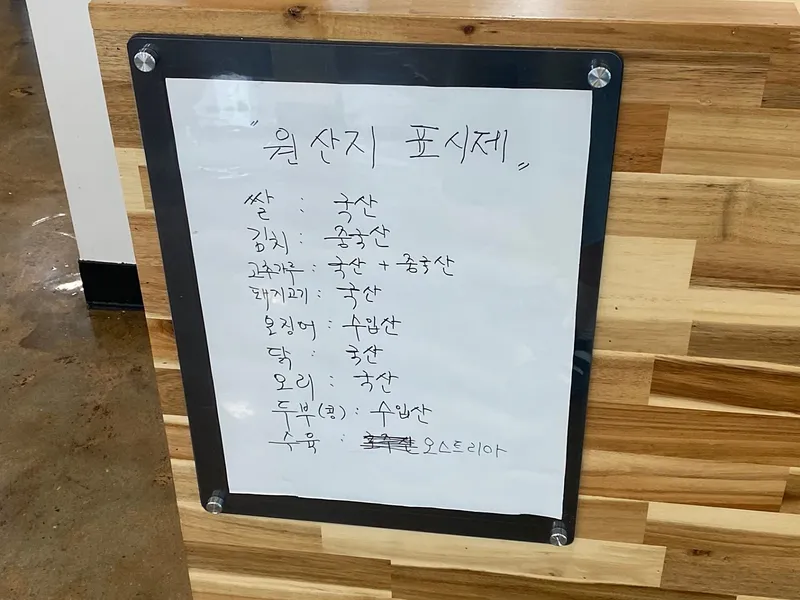 "원산지 표시제"
쌀 : 국산
김치 : 중국산
고추가루 : 국산 + 중국산
돼지고기 : 국산
오징어 : 수입산
닭 : 국산
오리 : 국산
두부(콩) : 수입산
수육 : 오스트리아